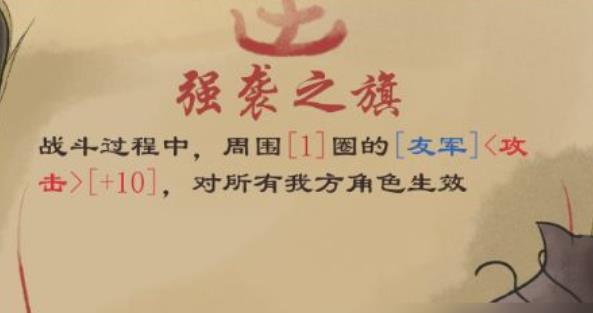 强袭之旗
战斗过程中，周围[1]圈的[友军]<攻
击>[+10]，对所有我方角色生效